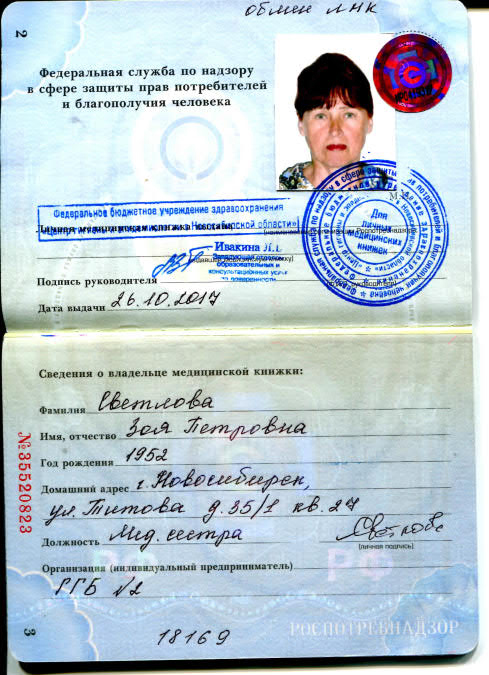 обмен ЛМК
2
Федеральная служба по надзору
в сфере защиты прав потребителей
и благополучия человека
Федеральное бюджетное учреждение здравоохранения
Новосибирской области»
Личная медицинская книжка выдана
Для
личных
медицинских
книжек
Ивакина Л.
Заведующая отделом
образовательных и
консультационных услуг
по доверенности
Подпись руководителя
Дата выдачи 26.10.2017
Сведения о владельце медицинской книжки:
Фамилия Светлова
Имя, отчество Зоя Петровна
Год рождения 1952
Домашний адрес г. Новосибирск,
ул. Титова д. 35/1 кв. 27
Должность Мед. сестра
(личная подпись)
Организация (индивидуальный предприниматель)
ГГБ №2
№35520823
18169
РОСПОТРЕБНАДЗОР
3